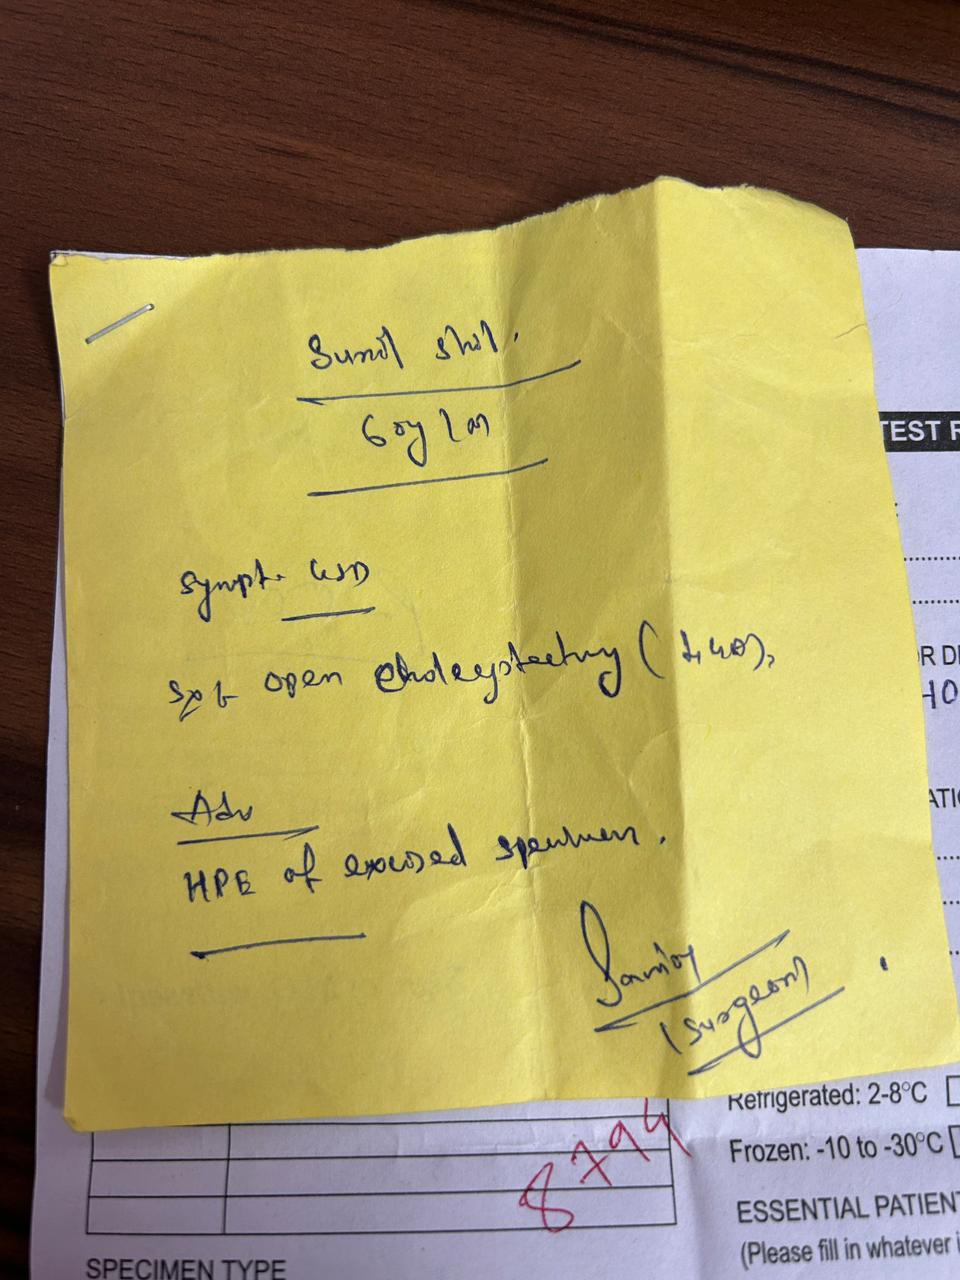 Sunil Shil.
60y / m
Sympt. GSD
open cholecystectomy
Adv
HPE of excised specimen.
(Surgeon)
TEST R
R DI
HO
ATIO
8794
Refrigerated: 2-8°C
Frozen: -10 to -30°C
ESSENTIAL PATIEN
(Please fill in whatever i
SPECIMEN TYPE